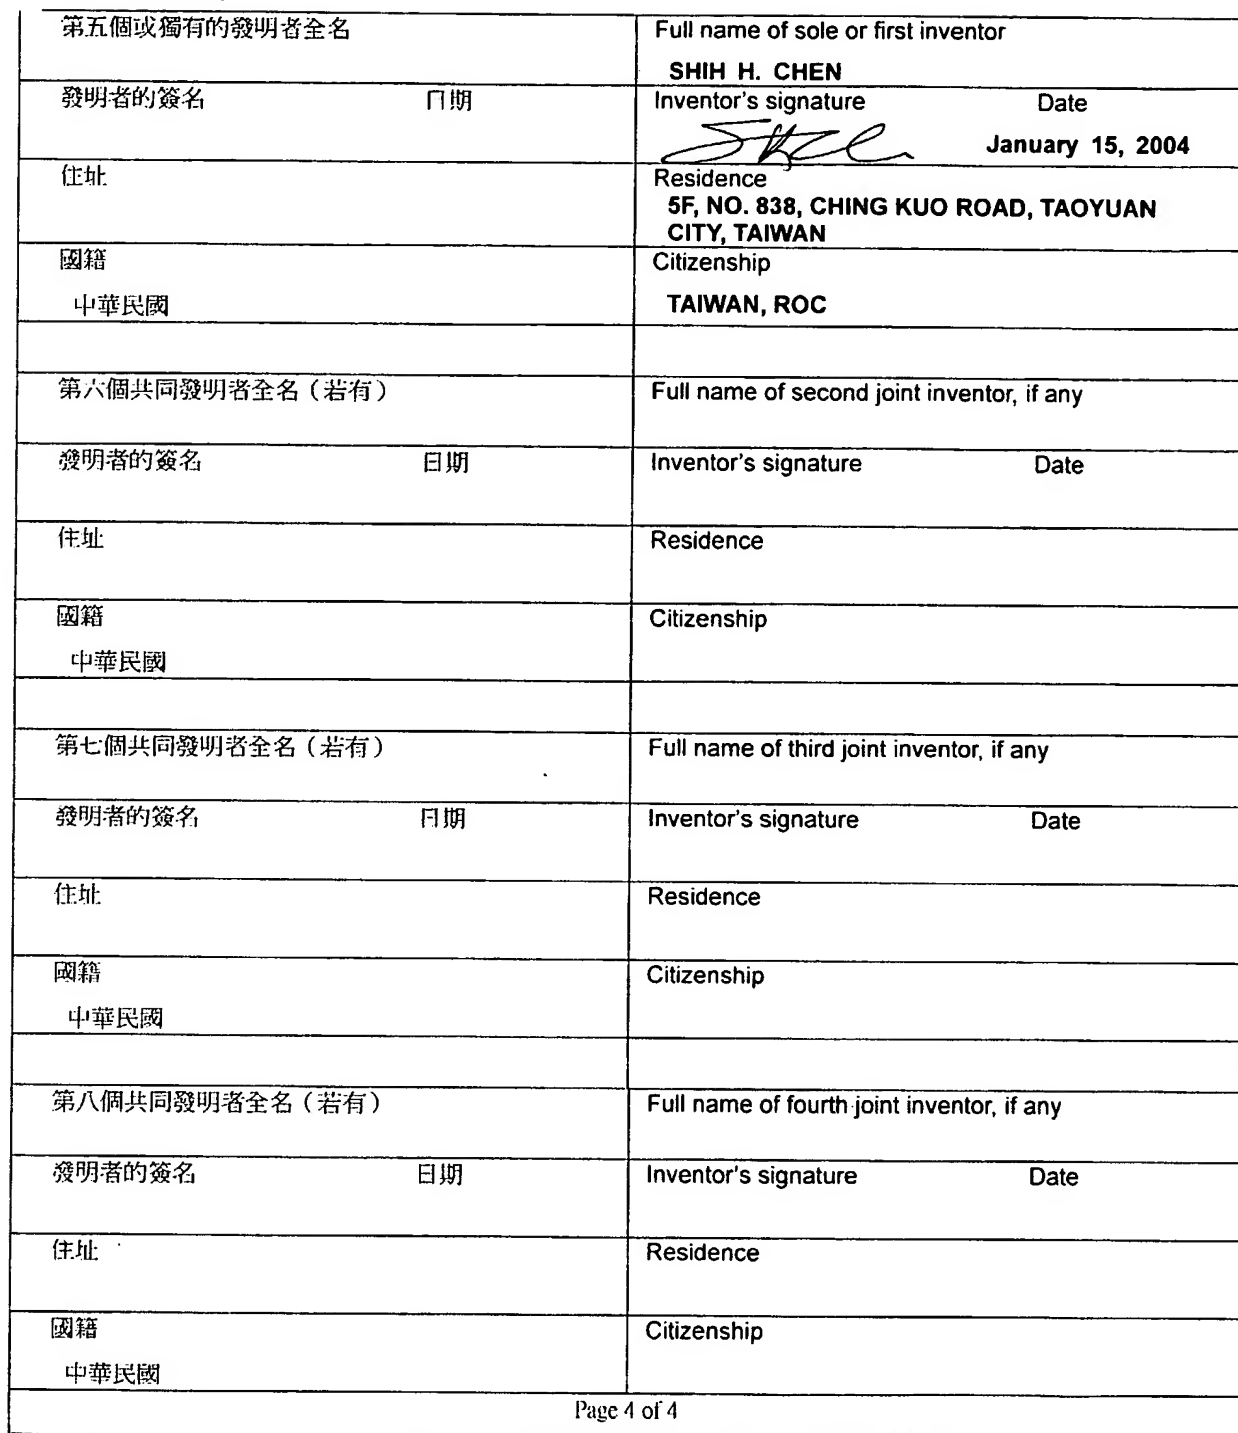 第五個或獨有的發明者全名
Full name of sole or first inventor
SHIH H. CHEN
發明者的簽名 日期
Inventor's signature Date
January 15, 2004
住址
Residence
5F, NO. 838, CHING KUO ROAD, TAOYUAN
CITY, TAIWAN
國籍
Citizenship
中華民國
TAIWAN, ROC
第六個共同發明者全名（若有）
Full name of second joint inventor, if any
發明者的簽名 日期
Inventor's signature Date
住址
Residence
國籍
Citizenship
中華民國
第七個共同發明者全名（若有）
Full name of third joint inventor, if any
發明者的簽名 日期
Inventor's signature Date
住址
Residence
國籍
Citizenship
中華民國
第八個共同發明者全名（若有）
Full name of fourth joint inventor, if any
發明者的簽名 日期
Inventor's signature Date
住址
Residence
國籍
Citizenship
中華民國
Page 4 of 4